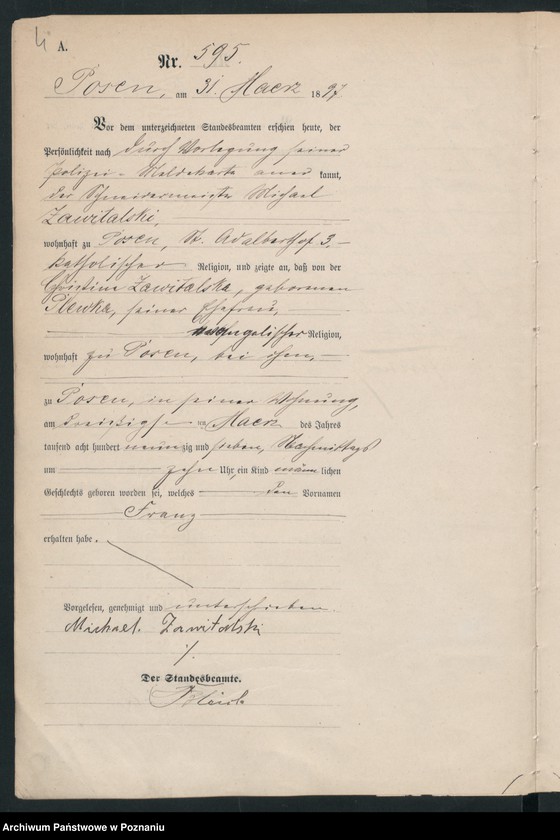 4
A.
Nr. 595.
Posen, am 31. Maerz 1897
Vor dem unterzeichneten Standesbeamten erschien heute, der
Persönlichkeit nach durch Vorlegung seiner
Polizei-Meldekarte aner kannt,
der Schneidermeister Michael
Zawitalski,
wohnhaft zu Posen, St. Adalberthof 3,
katholischer Religion, und zeigte an, daß von der
Christine Zawitalska, geborenen
Plewka, seiner Ehefrau,
evangelischer Religion,
wohnhaft zu Posen, bei ihm,
zu Posen, in seiner Wohnung,
am dreißigsten Maerz des Jahres
tausend acht hundert neunzig und sieben, Nachmittags
um zehn Uhr, ein Kind männ lichen
Geschlechts geboren worden sei, welches den Vornamen
Franz
erhalten habe.
Vorgelesen, genehmigt und unterschrieben.
Michael Zawitalski
Der Standesbeamte.
Archiwum Państwowe w Poznaniu